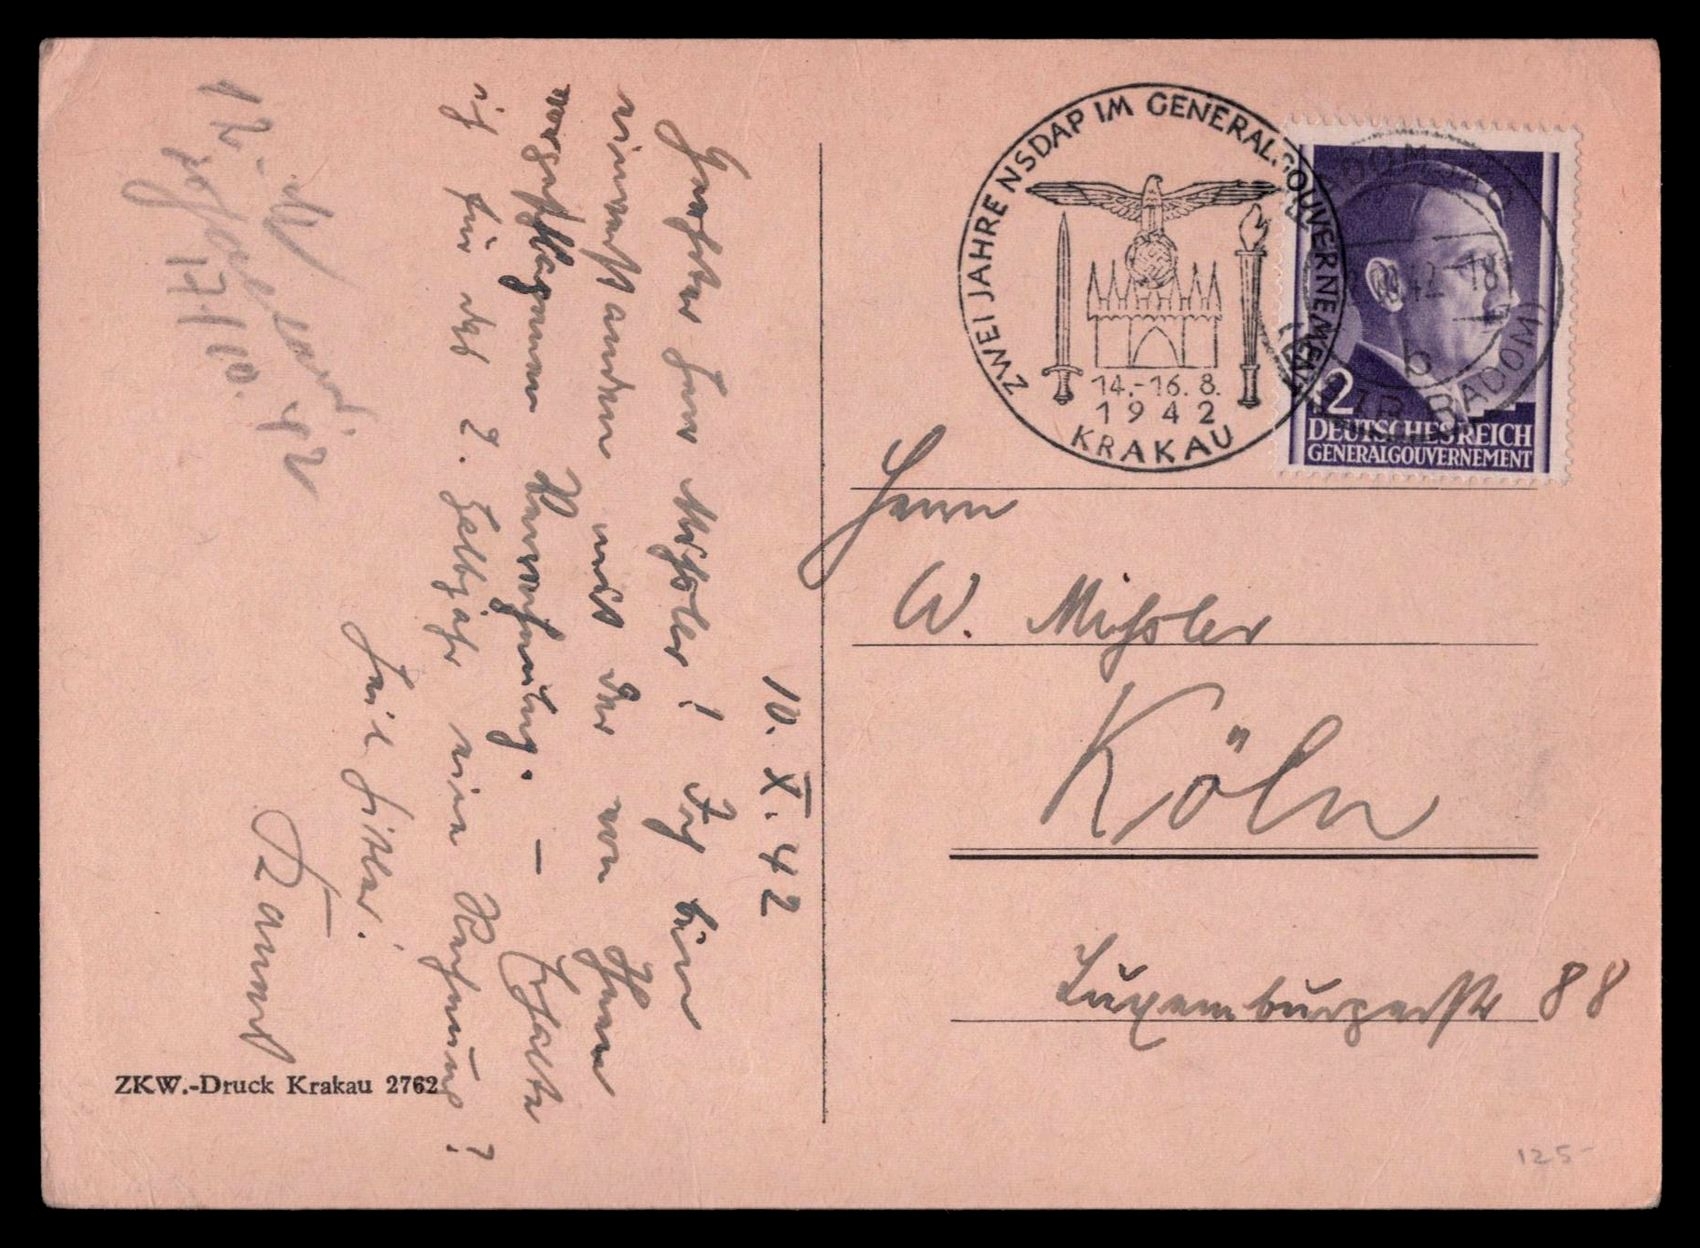 10. X. 42
Geehrter Herr Mißler! Ich bin
einverstanden mit der von Ihnen
vorgeschlagenen Verrechnung. — Erhalte
ich für das 2. Halbjahr eine Rechnung?
Heil Hitler!
12.-
17/10. 42
ZWEI JAHRE NSDAP IM GENERALGOUVERNEMENT
14.-16. 8.
1942
KRAKAU
RADOM
42-18
b
(DISTR. RADOM)
12
DEUTSCHES REICH
GENERALGOUVERNEMENT
Herrn
W. Mißler
Köln
Luxemburgerstr 88
ZKW.-Druck Krakau 2762
125-